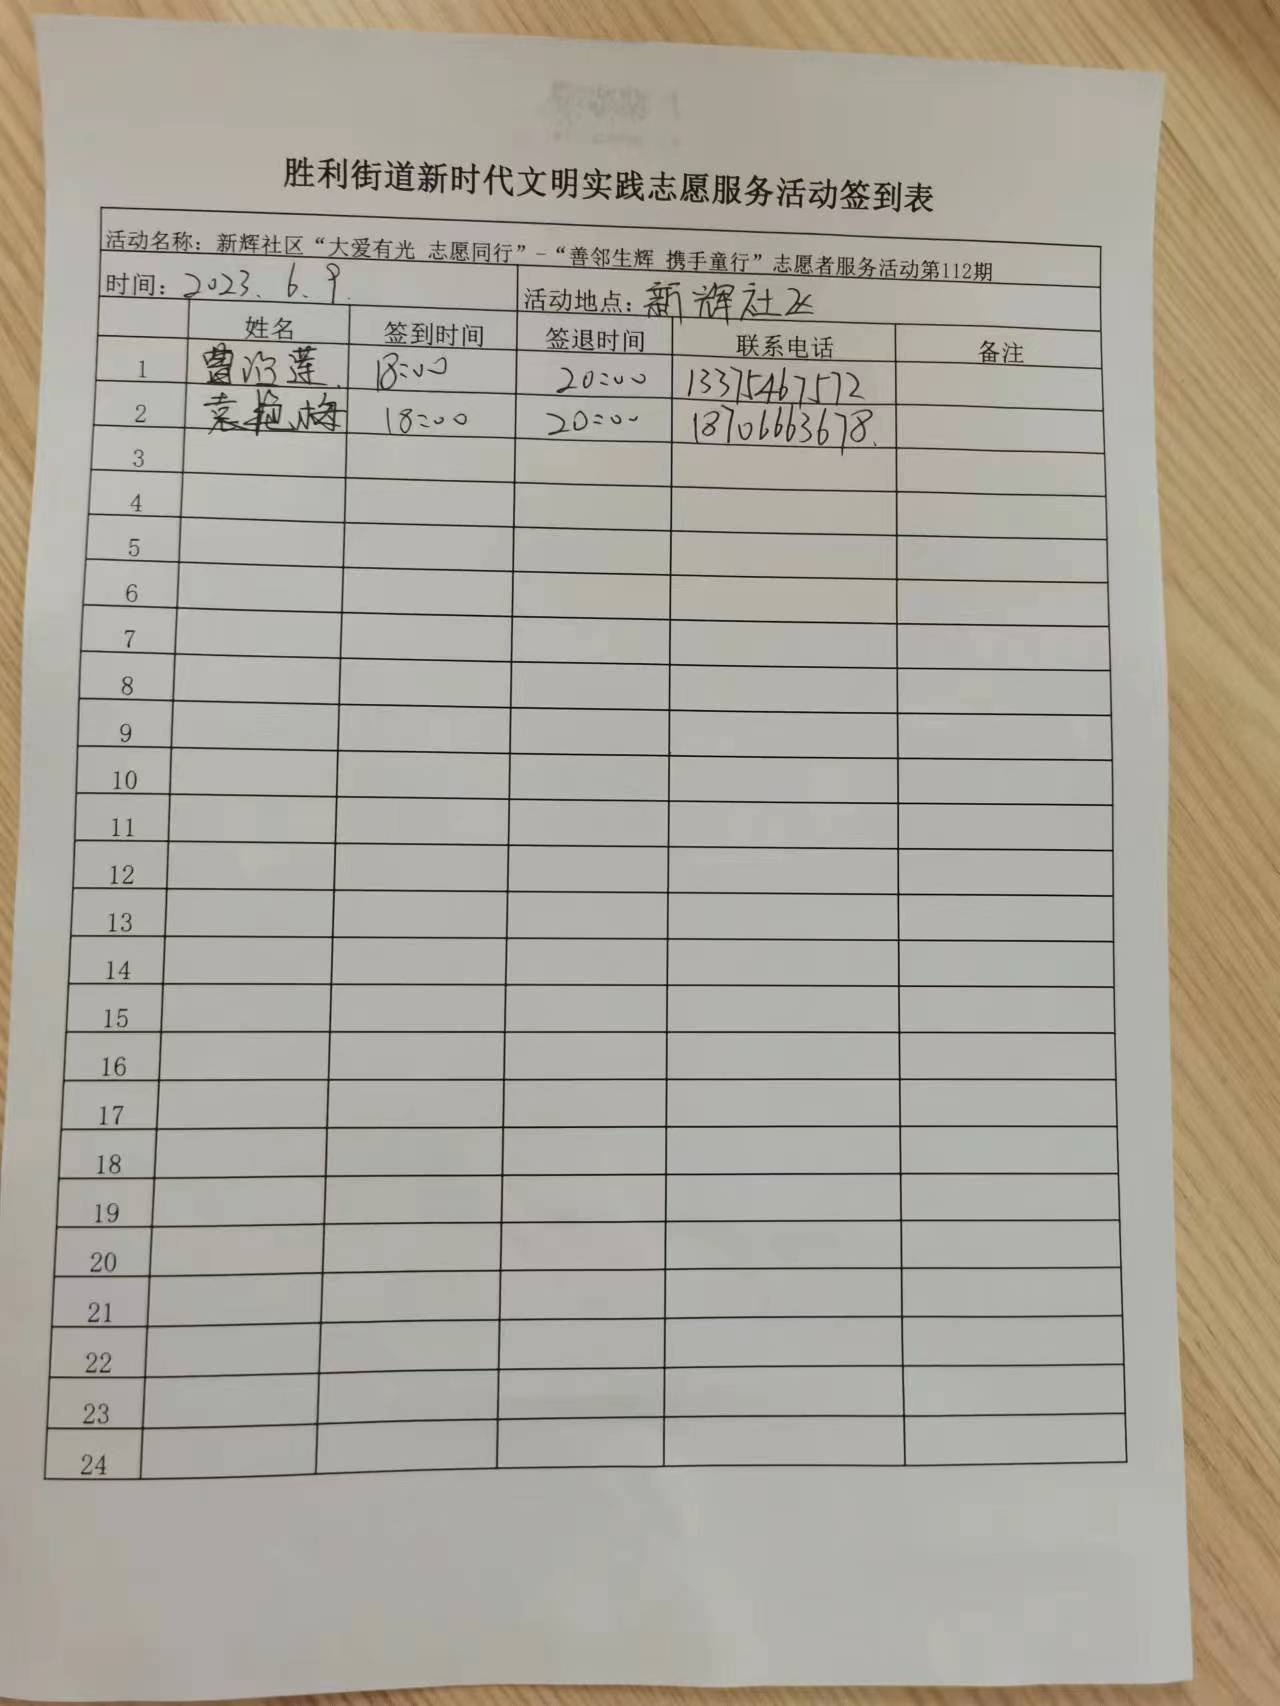 胜利街道新时代文明实践志愿服务活动签到表
活动名称：新辉社区“大爱有光 志愿同行”-“善邻生辉 携手童行”志愿者服务活动第112期
时间：2023.6.9. 活动地点：新辉社区
姓名 签到时间 签退时间 联系电话 备注
1 莲 18:00 20:00 13375467572
2 袁艳梅 18:00 20:00 18706663678.
3
4
5
6
7
8
9
10
11
12
13
14
15
16
17
18
19
20
21
22
23
24